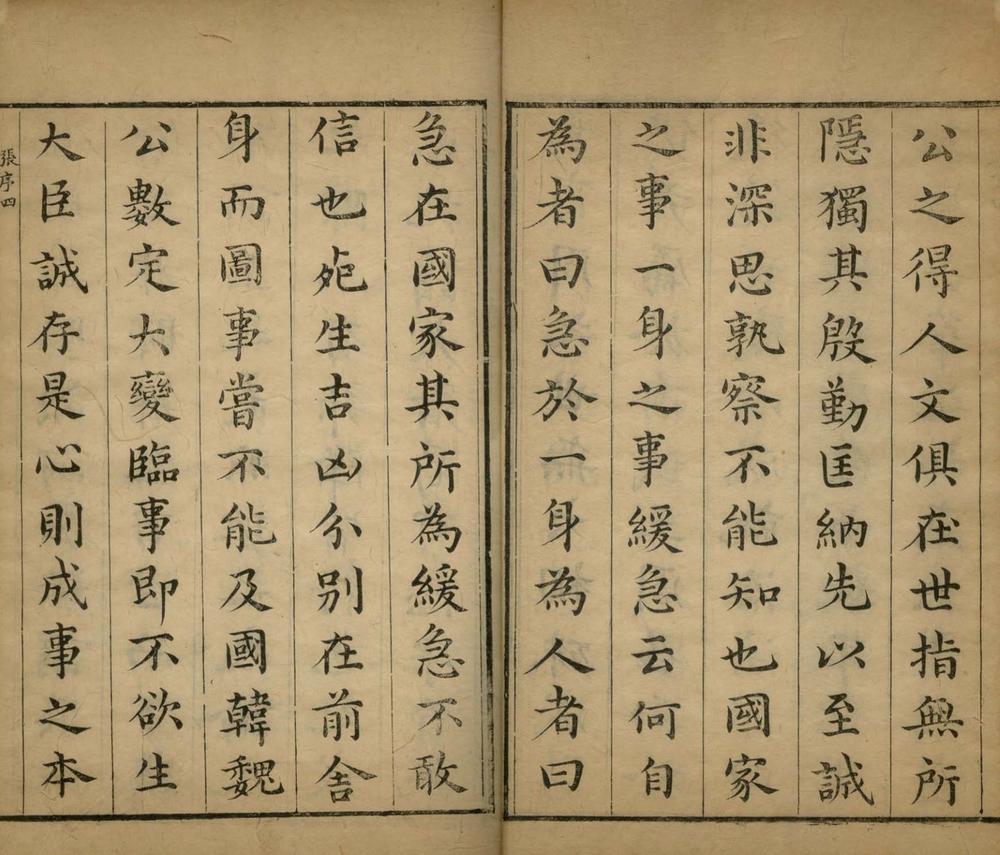 公之得人文俱在世指無所
隱獨其殷勤匡納先以至誠
非深思孰察不能知也國家
之事一身之事緩急云何自
為者曰急於一身為人者曰
急在國家其所為緩急不敢
信也夗生吉凶分别在前舍
身而圖事嘗不能及國韓魏
公數定大變臨事即不欲生
大臣誠存是心則成事之本
張序四